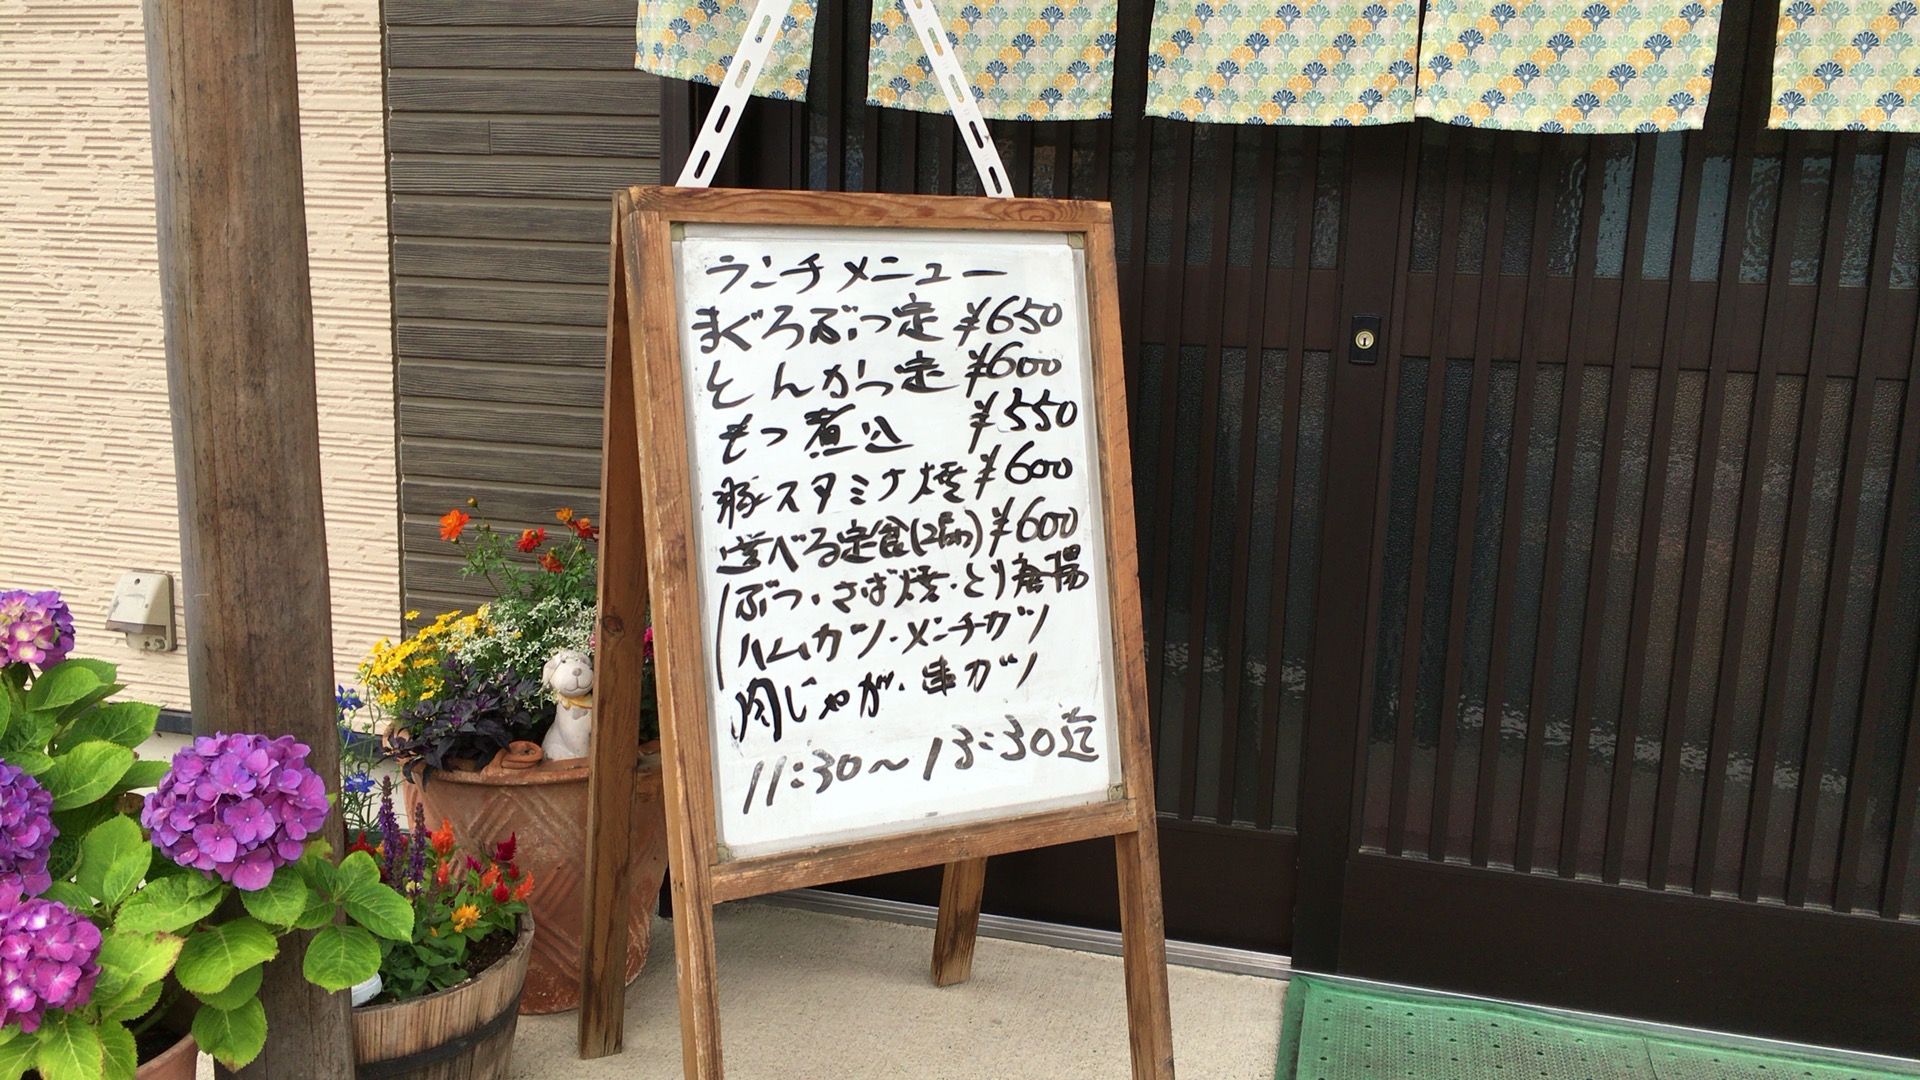 ランチメニュー
まぐろぶつ定 ¥650
とんかつ定 ¥600
もつ煮込 ¥550
豚スタミナ焼 ¥600
選べる定食(2品) ¥600
ぶつ・さば焼・とり唐揚
ハムカツ・メンチカツ
肉じゃが・串カツ
11:30〜13:30迄